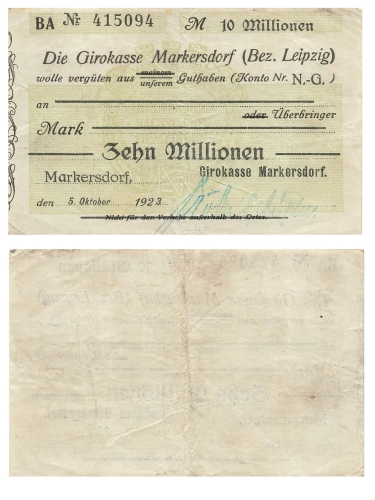 BA № 415094 M 10 Millionen
Die Girokasse Markersdorf (Bez. Leipzig)
wolle vergüten aus meinem unserem Guthaben (Konto Nr. N.-G. )
an
oder Überbringer
Mark
Zehn Millionen
Markersdorf, Girokasse Markersdorf.
den 5. Oktober 1923
Nicht für den Verkehr außerhalb des Ortes.